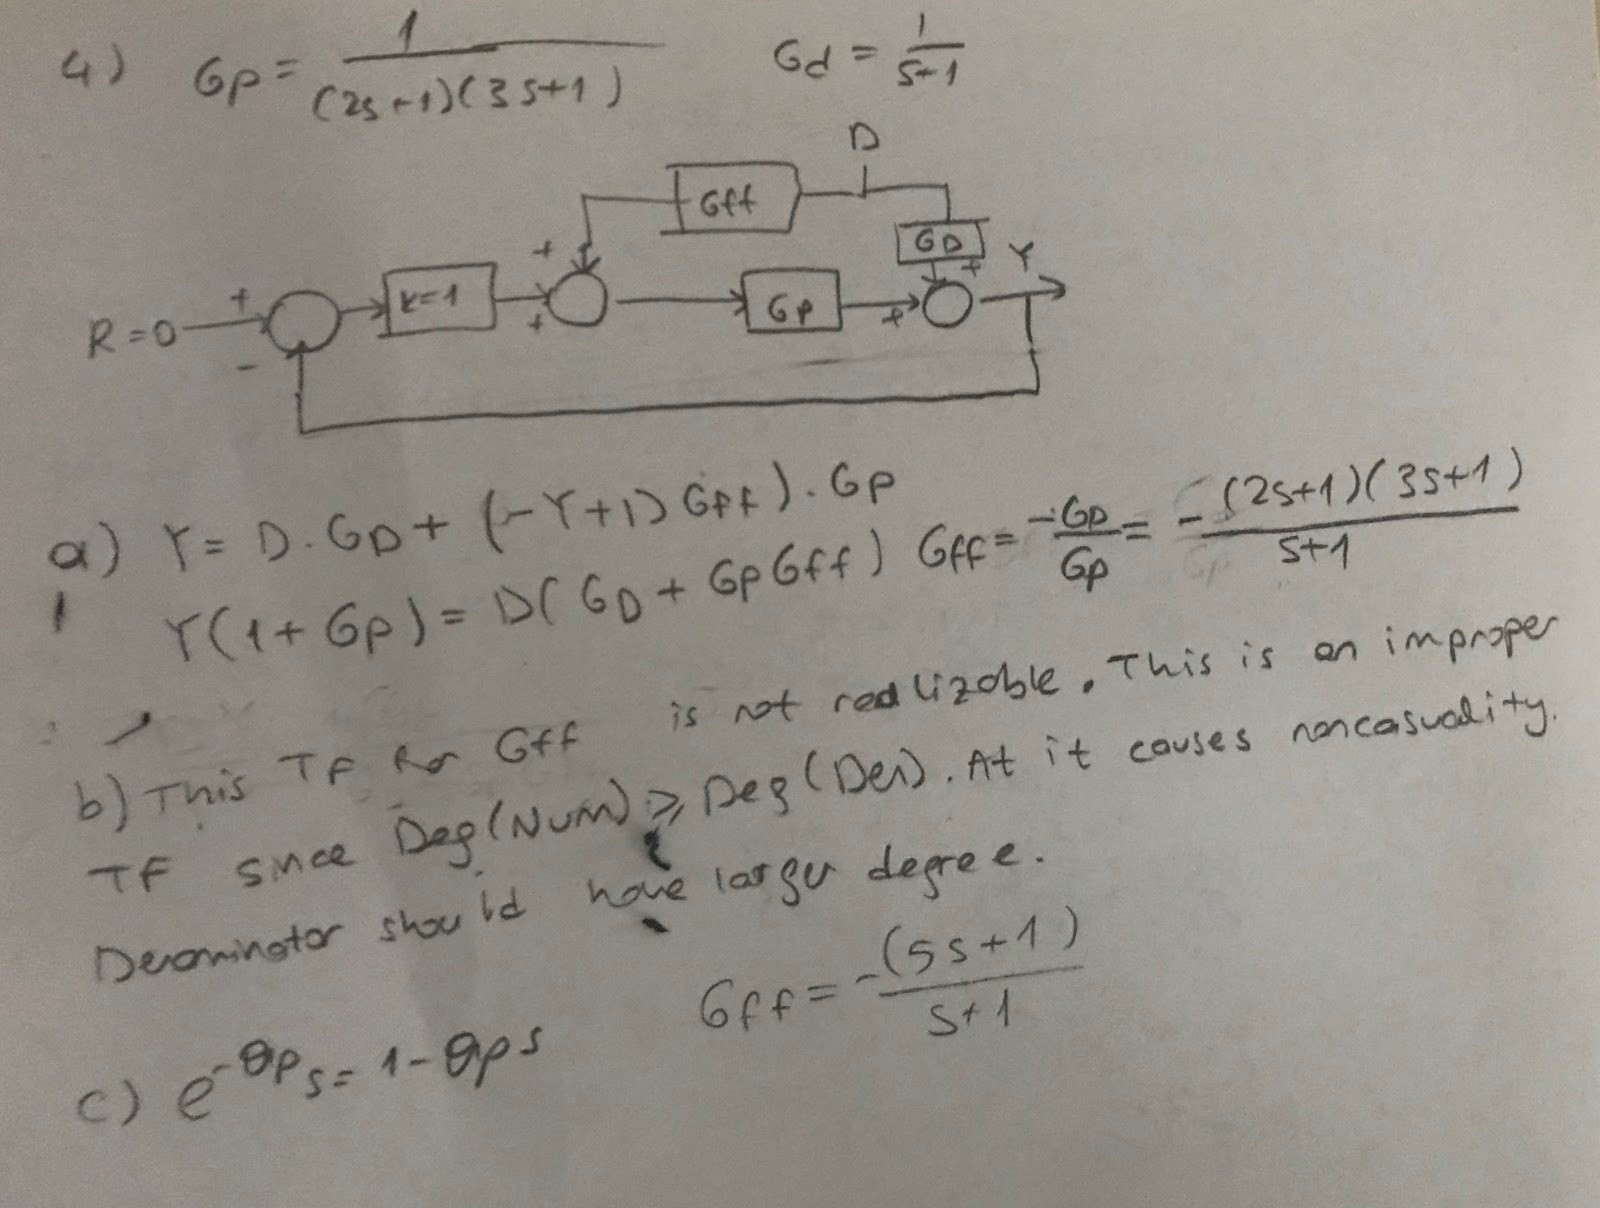 4) Gp = 1 / (2s+1)(3s+1)    Gd = 1 / s+1
D
Gff
GD
Y
+
+
+
R=0
+
K=1
Gp
+
-
a) Y = D.GD + (-Y+D Gff).Gp
Y(1+Gp) = D(GD + GpGff)    Gff = -GD / Gp = -(2s+1)(3s+1) / s+1
b) This TF for Gff is not realizable. This is an improper
TF since Deg(Num) ≥ Deg(Den). At it causes noncasuality.
Denominator should have larger degree.
Gff = -(5s+1) / s+1
c) e^-θps = 1-θps